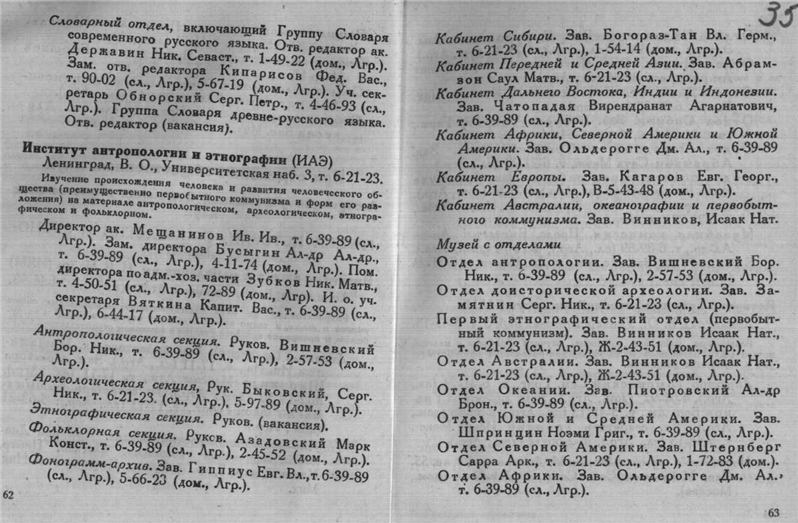 Словарный отдел, включающий Группу Словаря
современного русского языка. Отв. редактор ак.
Державин Ник. Севаст., т. 1-49-22 (дом., Лгр.).
Зам. отв. редактора Кипарисов Фед. Вас.,
т. 90-02 (сл., Лгр.), 5-67-19 (дом., Лгр.). Уч. сек-
ретарь Обнорский Серг. Петр., т. 4-46-93 (сл.,
Лгр.). Группа Словаря древне-русского языка.
Отв. редактор (вакансия).
Институт антропологии и этнографии (ИАЭ)
Ленинград, В. О., Университетская наб. 3, т. 6-21-23.
Изучение происхождения человека и развития человеческого об-
щества (преимущественно первобытного коммунизма и форм его раз-
ложения) на материале антропологическом, археологическом, этногра-
фическом и фольклорном.
Директор ак. Мещанинов Ив. Ив., т. 6-39-89 (сл.,
Лгр.). Зам. директора Бусыгин Ал-др Ал-др.,
т. 6-39-89 (сл., Лгр.), 4-11-74 (дом., Лгр.). Пом.
директора по адм.-хоз. части Зубков Ник. Матв.,
т. 4-50-51 (сл., Лгр.), 72-89 (дом., Лгр). И. о. уч.
секретаря Вяткина Капит. Вас., т. 6-39-89 (сл.,
Лгр.), 6-44-17 (дом., Лгр.).
Антропологическая секция. Руков. Вишневский
Бор. Ник., т. 6-39-89 (сл., Лгр.), 2-57-53 (дом.,
Лгр.).
Археологическая секция, Рук. Быковский, Серг.
Ник., т. 6-21-23. (сл., Лгр.), 5-97-89 (дом., Лгр.).
Этнографическая секция. Руков. (вакансия).
Фольклорная секция. Руков. Азадовский Марк
Конст., т. 6-39-89 (сл., Лгр.), 2-45-52 (дом., Лгр.).
Фонограмм-архив. Зав. Гиппиус Евг. Вл., т. 6-39-89
(сл., Лгр.), 5-66-23 (дом., Лгр.).
62
35
Кабинет Сибири. Зав. Богораз-Тан Вл. Герм.,
т. 6-21-23 (сл., Лгр.), 1-54-14 (дом., Лгр.).
Кабинет Передней и Средней Азии. Зав. Абрам-
зон Саул Матв., т. 6-21-23 (сл., Лгр.).
Кабинет Дальнего Востока, Индии и Индонезии.
Зав. Чатопадая Вирендранат Агарнатович,
т. 6-39-89 (сл., Лгр.).
Кабинет Африки, Северной Америки и Южной
Америки. Зав. Ольдерогге Дм. Ал., т. 6-39-89
(сл., Лгр.).
Кабинет Европы. Зав. Кагаров Евг. Георг.,
т. 6-21-23 (сл., Лгр.), В-5-43-48 (дом., Лгр.).
Кабинет Австралии, океанографии и первобыт-
ного коммунизма. Зав. Винников, Исаак Нат.
Музей с отделами
Отдел антропологии. Зав. Вишневский Бор.
Ник., т. 6-39-89 (сл., Лгр.), 2-57-53 (дом., Лгр.).
Отдел доисторической археологии. Зав. За-
мятнин Серг. Ник., т. 6-21-23 (сл., Лгр.).
Первый этнографический отдел (первобыт-
ный коммунизм). Зав. Винников Исаак Нат.,
т. 6-21-23 (сл., Лгр.), Ж-2-43-51 (дом., Лгр.).
Отдел Австралии. Зав. Винников Исаак Нат.,
т. 6-21-23 (сл., Лгр.), Ж-2-43-51 (дом., Лгр.).
Отдел Океании. Зав. Пиотровский Ал-др
Брон., т. 6-39-89 (сл., Лгр.).
Отдел Южной и Средней Америки. Зав.
Шпринцин Ноэми Григ., т. 6-39-89 (сл., Лгр.).
Отдел Северной Америки. Зав. Штернберг
Сарра Арк., т. 6-21-23 (сл., Лгр.), 1-72-83 (дом.).
Отдел Африки. Зав. Ольдерогге Дм. Ал.,
т. 6-39-89 (сл., Лгр.).
63